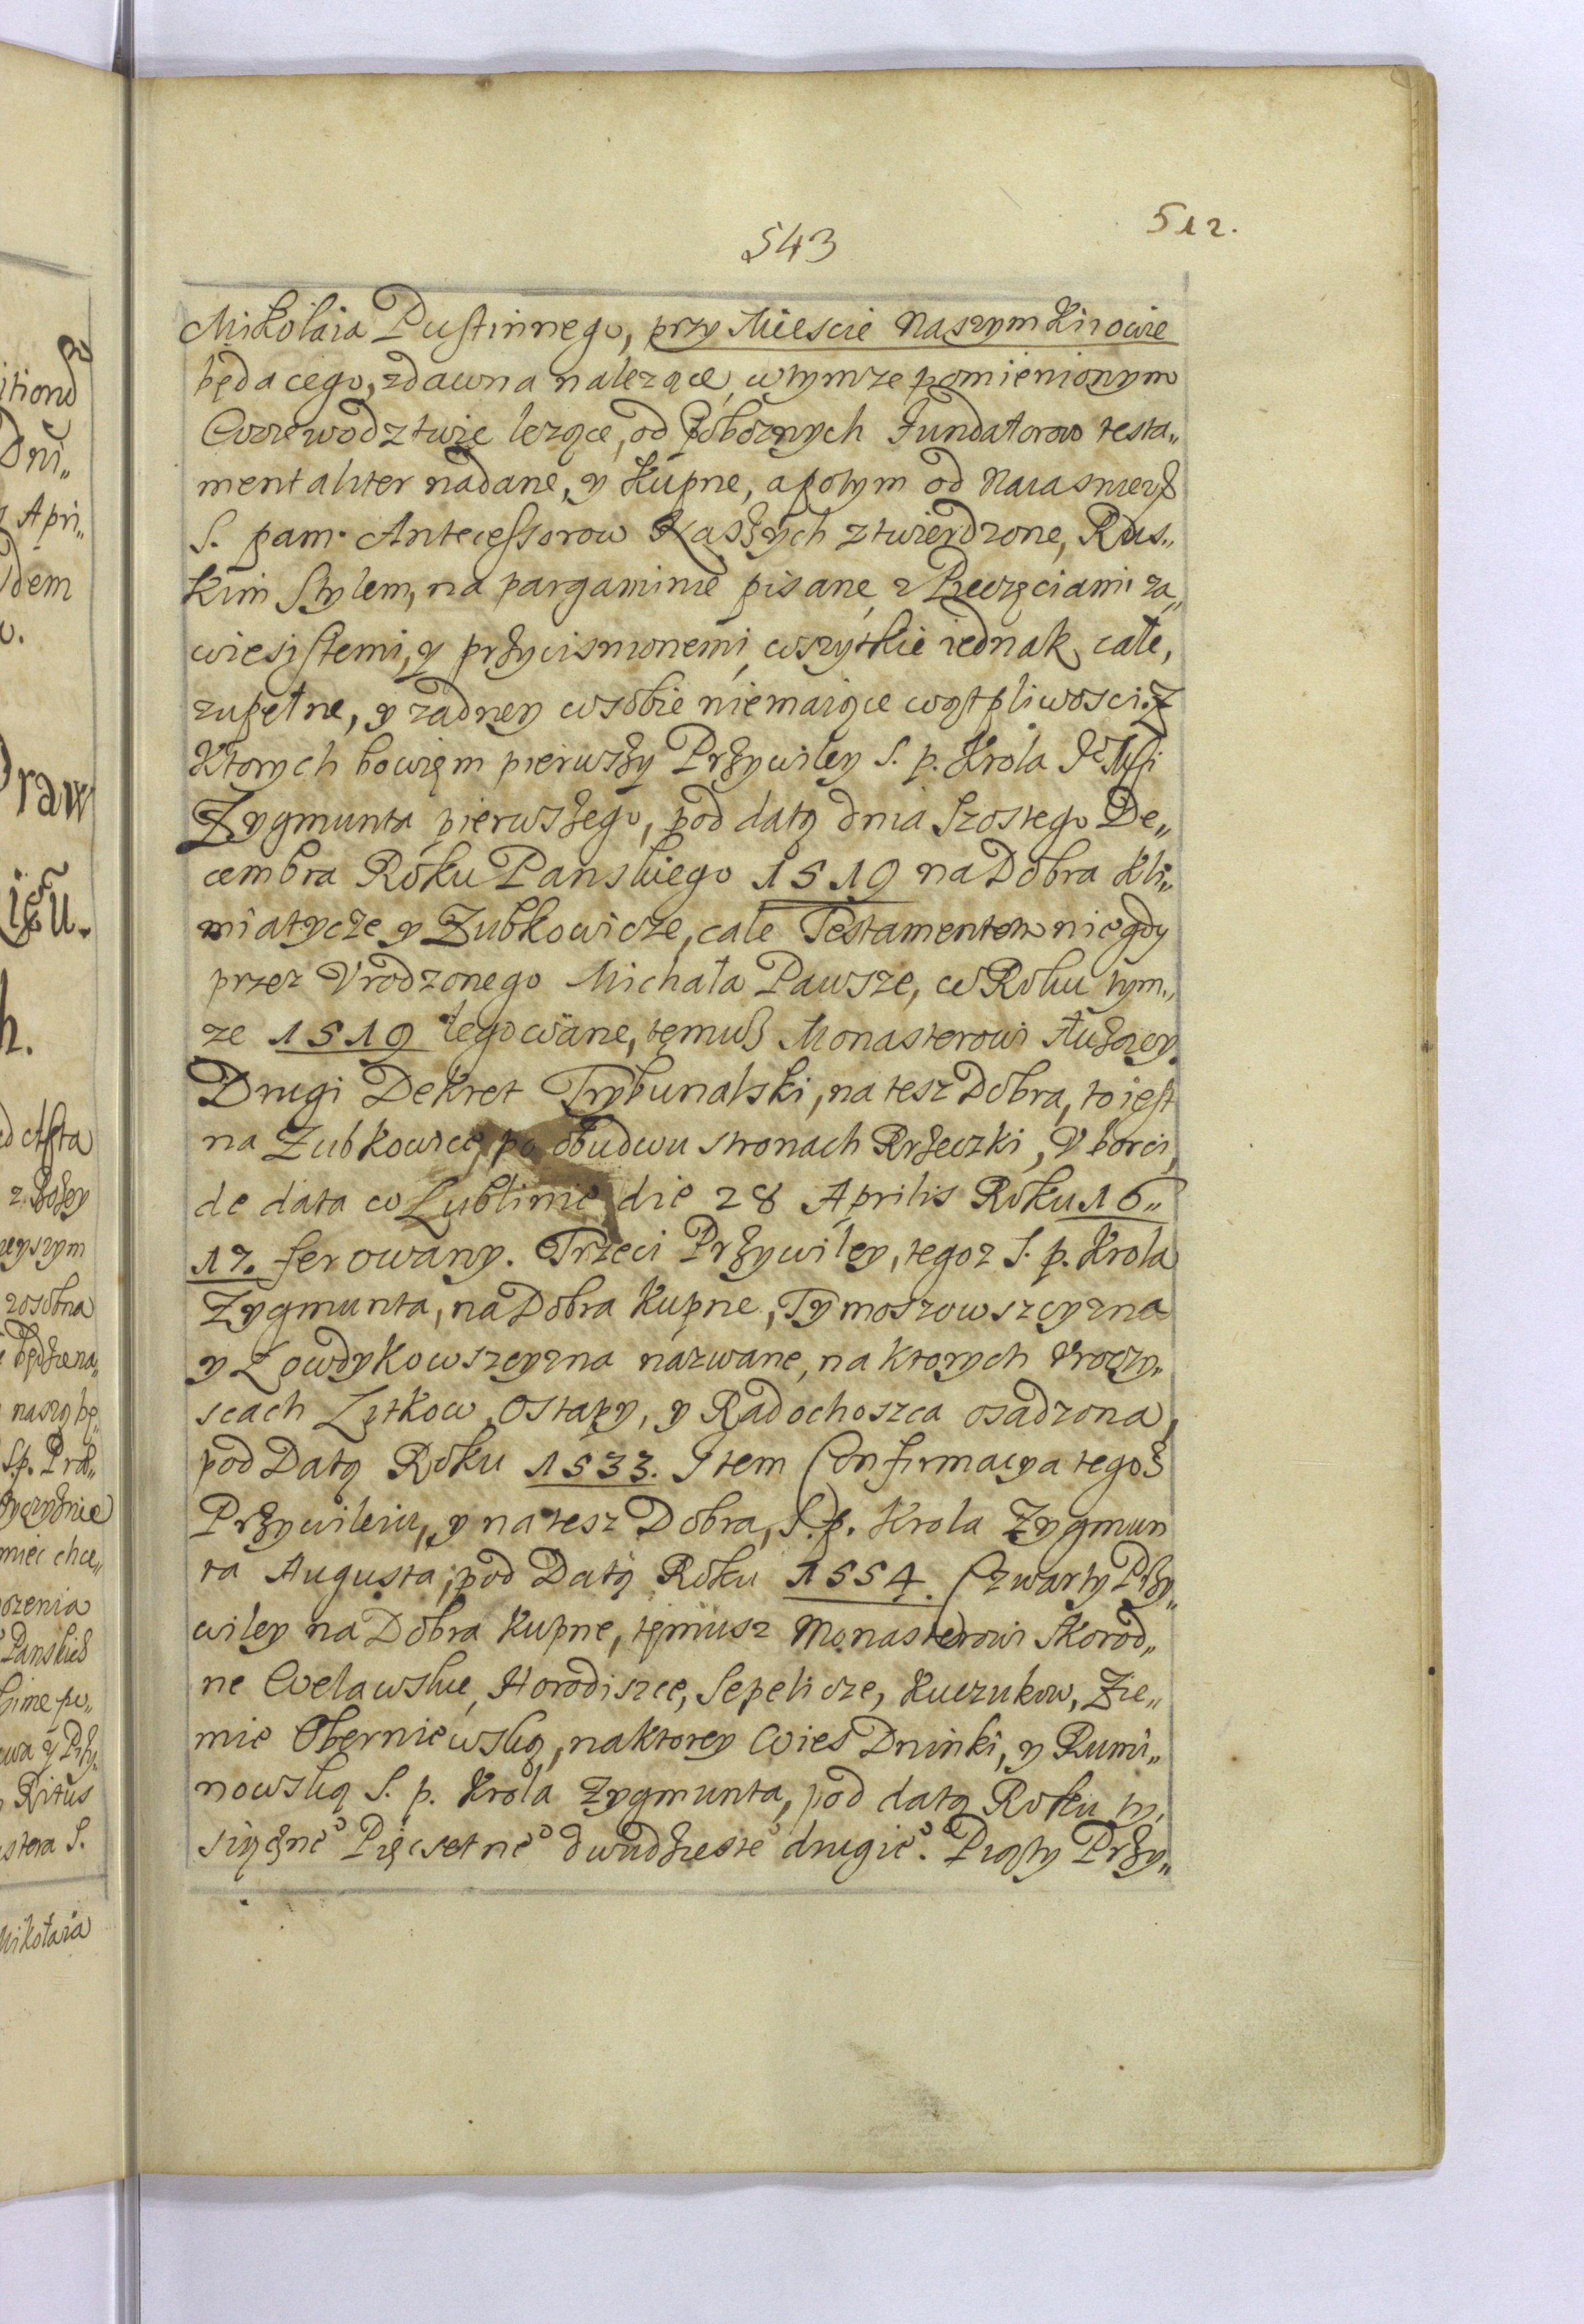 543
512.
Mikołaia Pustinnego, przy Miescie Naszym Kiiowie
będącego, zdawna nalezące, w tymze pomienionym
Woiewodztwie lezące, od Pobóznych Fundatorow testa„
mentaliter nadane, y Kupne, a potym od Naiasnieysz
S. pam. Antecessorow Naszych ztwierdzone, Rus„
kim Stylem, na pargaminie pisane, z Pieczęciami za„
wiesistemi, y przycisnionemi, wszytkie iednak całe,
zupełne, y zadney w sobie niemaiące wątpliwosci. Z
Ktorych bowięm pierwszy Przywiley S. p. Krola
Zygmunta pierwszego, pod datą dnia Szostego De„
cembra Roku Panskiego 1519 na Dobra Kli„
miatycze y Zubkowicze, cale Testamentem niegdy
przez Vrodzonego Michała Pawsze, w Roku tym„
ze 1519 legowane, tęmuż Monasterowi służący.
Drugi Dekret Trybunalski, na tesz Dobra, to iest
na Zubkowice, po obudwu stronach Rzeczki, Vborci,
de data w Lublinie die 28 Aprilis Roku 16„
17. ferowany. Trzeci Przywiley, tegoz S. p. Krola
Zygmunta, na Dobra Kupne, Tymoszowszczyzna
y Łowdykowszczyzna názwane, na ktorych Vroczy„
scach Zytkow, Ostapy, y Radochoszca osadzona,
pod Datą Roku 1533. Item Confirmacya tegoż
Przywileiu, y na tesz Dobra, S. p. Krola Zygmun
ta Augusta, pod Datą Roku 1554. Czwarty Przy„
wiley na Dobra Kupne, tęmusz Monasterowi Skorod„
ne Welawskie, Horodiszce, Sepelicze, Kuczukow, Zie„
mie Oberniewską, na ktorey Wies Dninki, y Rumi„
nowską S. p. Króla Zygmunta, pod datą Roku ty„
siączne° Pięcsetne° dwudzieste° drugie°. Piąty Przy„